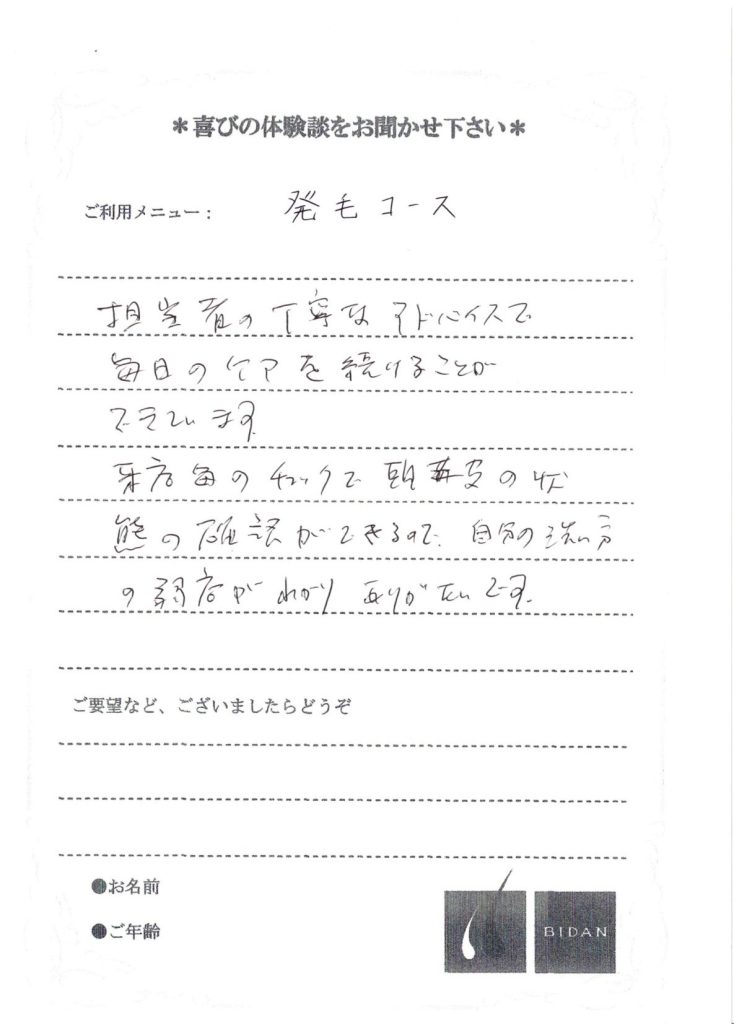 ＊喜びの体験談をお聞かせ下さい＊
ご利用メニュー： 発毛コース
担当者の丁寧なアドバイスで
毎日のケアを続けることが
できています
来店毎のチェックで頭皮の状
態の確認ができるので、自分の洗い方
の弱点がわかりありがたいです。
ご要望など、ございましたらどうぞ
●お名前
●ご年齢
BIDAN